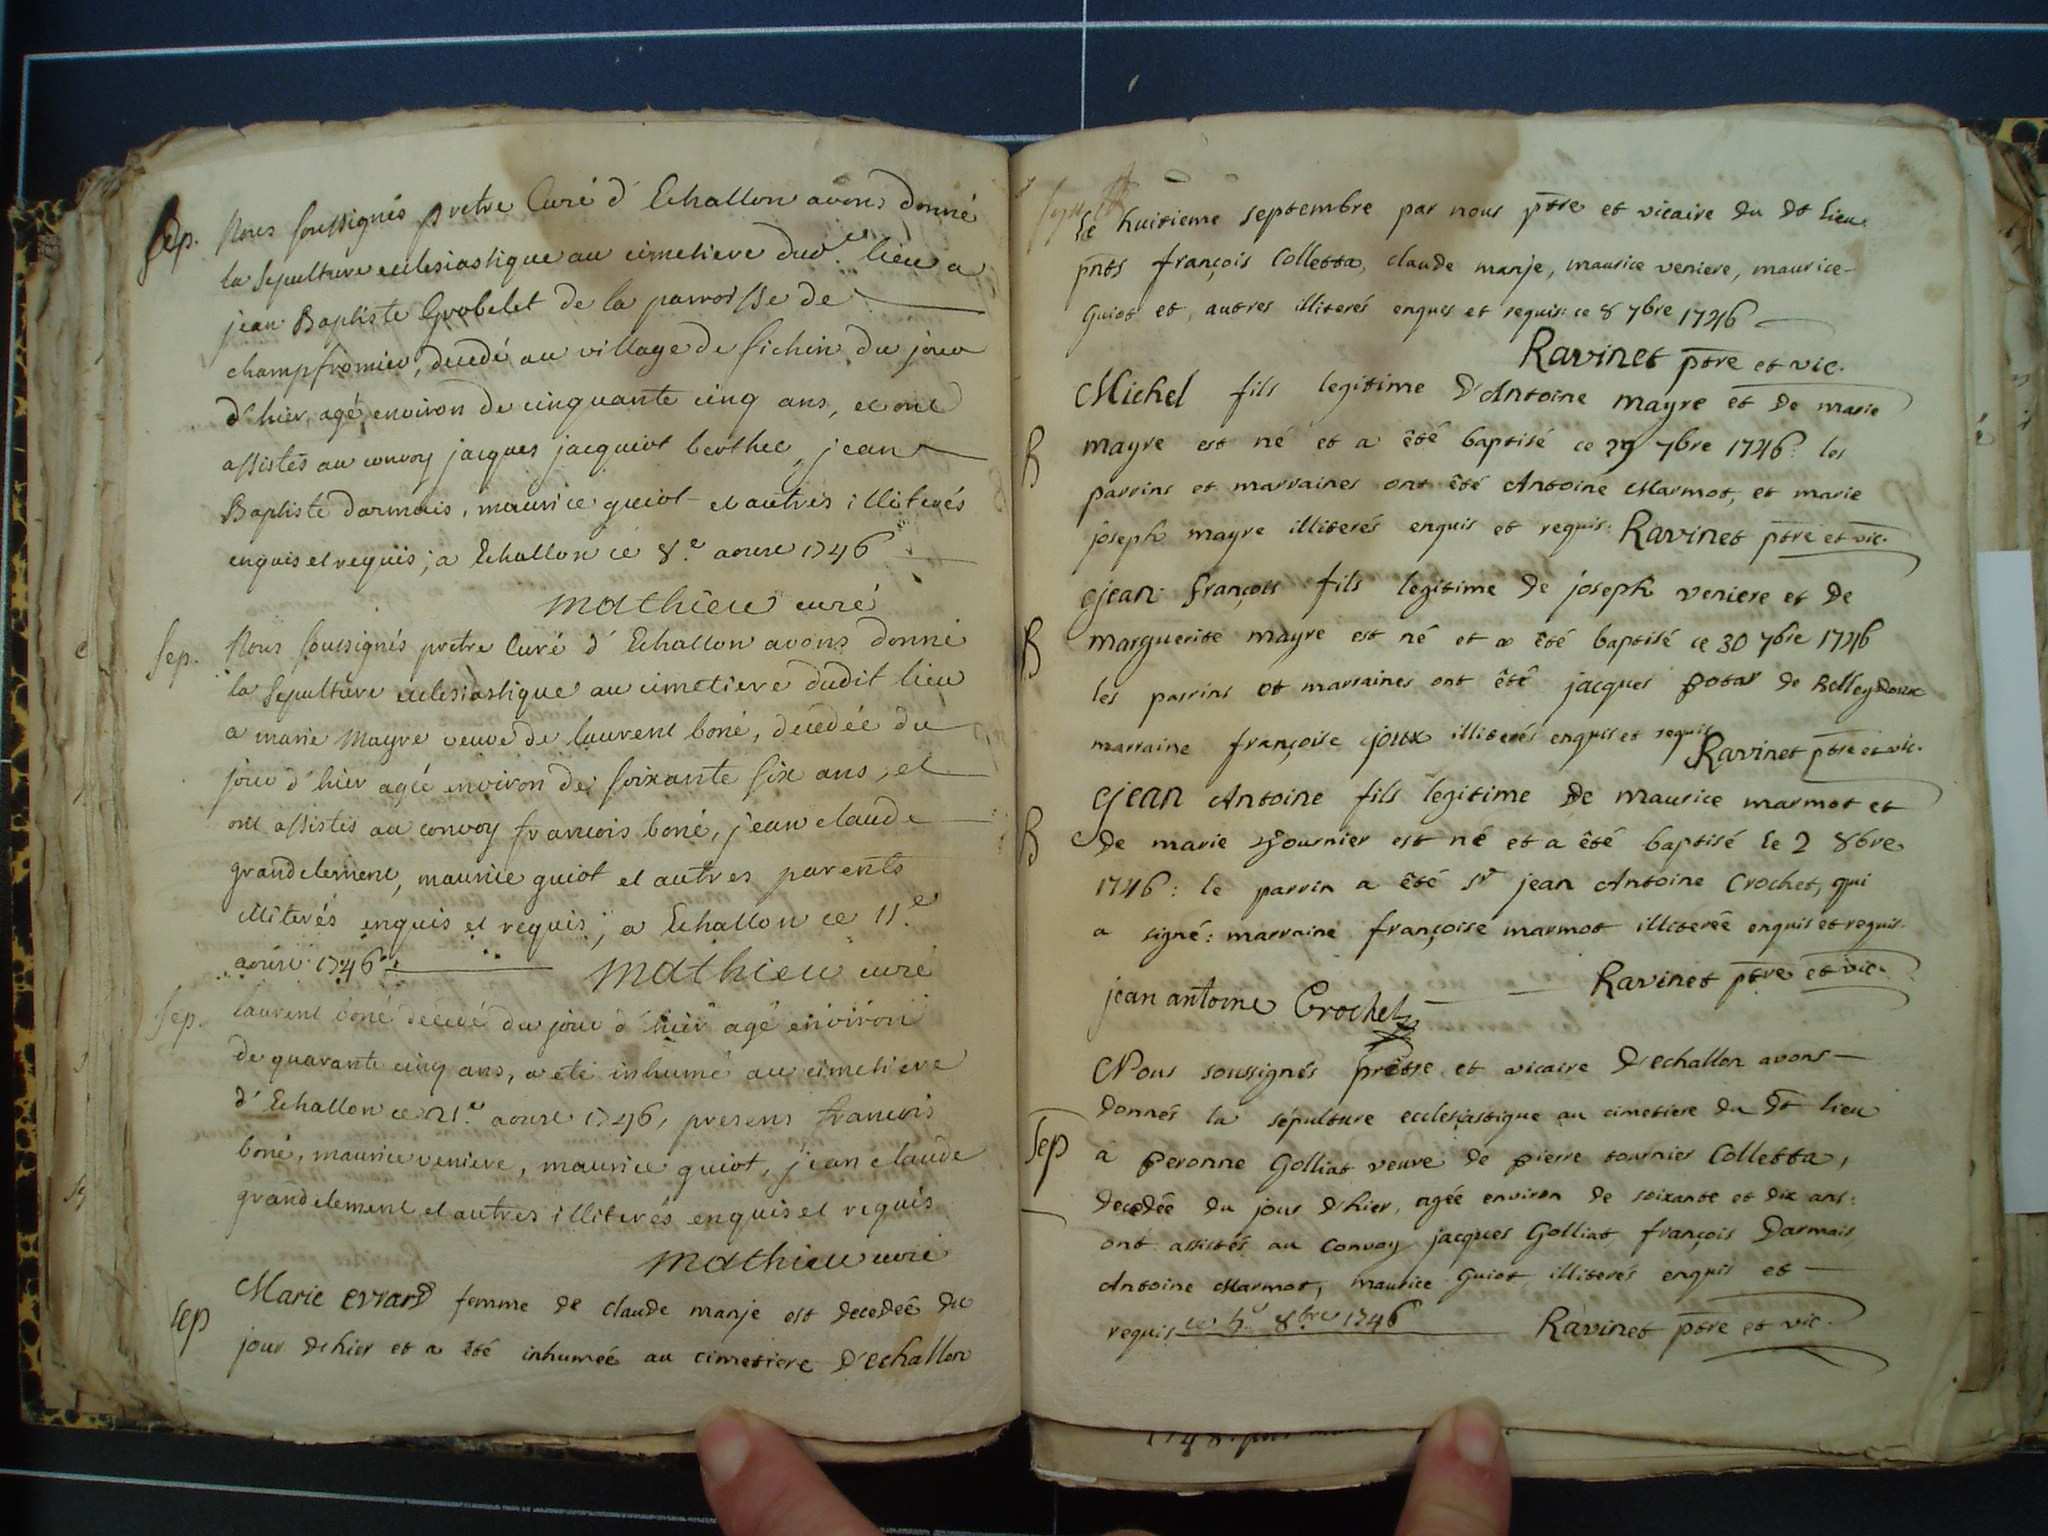 Sep. Nous soussignés pretre Curé d'Echallon avons donné
la sepulture ecclesiastique au cimetiere dud.t lieu a
jean Baptiste Grobelet de la parroisse de
champfromier, decedé au village de sichin du jour
d'hier, agé environ de cinquante cinq ans, et ont
assistés au convoy jacques jacquiot berthet, jean
Baptiste darmais, maurice guiot et autres illiterés
enquis et requis; a Echallon ce 8.e aoust 1746
mathieu curé
Sep. Nous soussignés pretre Curé d'Echallon avons donné
la sepulture ecclesiastique au cimetiere dudit lieu
a marie Mayre veuve de laurent boné, decedée du
jour d'hier agée environ de soixante six ans, et
ont assistés au convoy francois boné, jean claude
grandclement, maurice guiot et autres parents
illiterés enquis et requis; a Echallon ce 11.e
aoust 1746. mathieu curé
Sep. laurent boné decedé du jour d'hier agé environ
de quarante cinq ans, a eté inhumé au cimetiere
d'Echallon ce 21.e aoust 1746, presens francois
boné, maurice veniere, maurice guiot, jean claude
grandclement et autres illiterés enquis et requis
mathieu curé
Sep Marie evrard femme de claude manje est decedeé du
jour d'hier et a été inhumeé au cimetiere d'echallon
le huitieme septembre par nous ptre et vicaire du dt lieu
pnts françois Colletta, claude manje, maurice veniere, maurice
Guiot et autres illiterés enquis et requis: ce 8 7bre 1746
Ravinet ptre et vic.
Michel fils legitime d'Antoine mayre et de marie
B mayre est né et a êté baptisé ce 29 7bre 1746: les
parrins et marraines ont êté Antoine Marmot, et marie
joseph mayre illiterés enquis et requis: Ravinet ptre et vic.
jean françois fils legitime de joseph veniere et de
B marguerite mayre est né et a êté baptisé ce 30 7bre 1746
les parrins et marraines ont êté jacques potar de Belleydoux
marraine françoise joux illiterés enquis et requis Ravinet ptre et vic.
jean Antoine fils legitime de maurice marmot et
B de marie tournier est né et a êté baptisé le 2 8bre
1746: le parrin a êté Sr jean Antoine Crochet, qui
a signé: marraine françoise marmot illitereê enquis et requis.
jean antoine Crochet Ravinet ptre et vic.
Nous soussignés prêtre et vicaire d'echallon avons
donnés la sépulture ecclesiastique au cimetiere du dt lieu
Sep à peronne Golliat veuve de pierre tournier Colletta,
decedée du jour d'hier, agée environ de soixante et dix ans:
ont assistés au Convoy jacques Golliat françois Darmais
Antoine Marmot, maurice Guiot illiterés enquis et
requis ce 5e 8bre 1746 Ravinet ptre et vic.